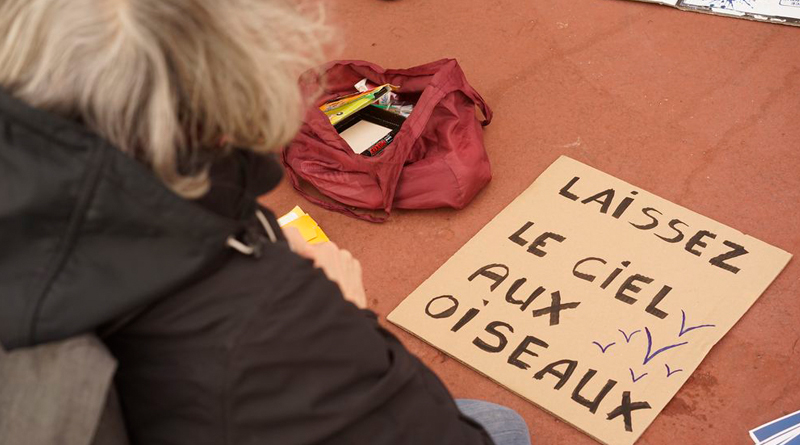 LAiSSEZ
LE CiEL
AUX
OiSEAUX